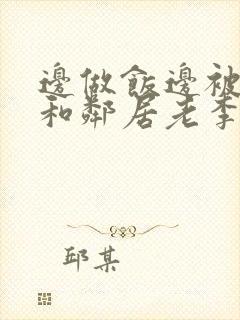 邊做飯邊被
和鄰居老李
邱某